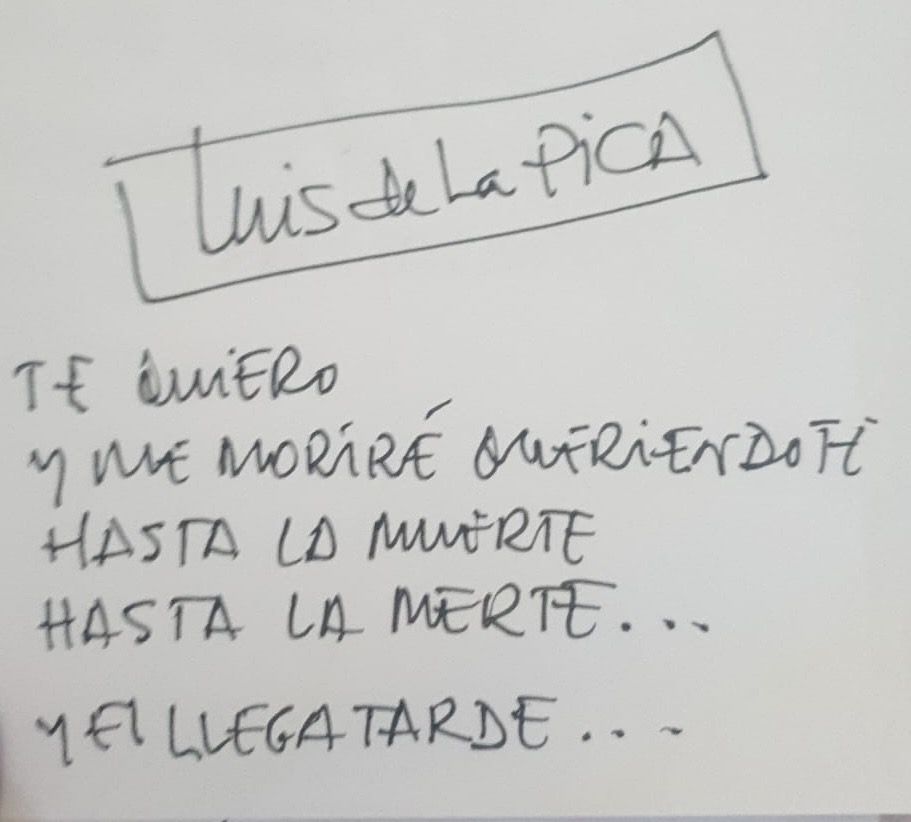 Luis de La PiCA
TE QUIERO
Y ME MORIRÉ QUERIENDOTE
HASTA LA MUERTE
HASTA LA MERTE...
Y El LLEGA TARDE...